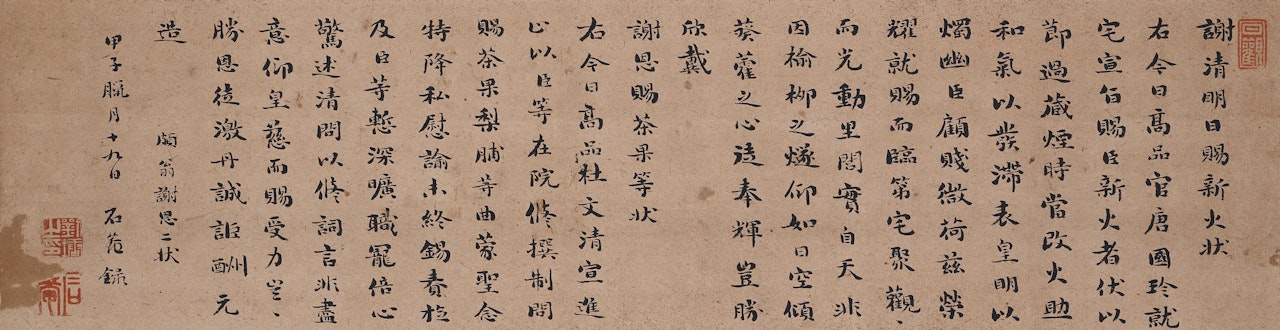 謝清明日賜新火狀
右今日高品官唐國珍就
宅宣旨賜臣新火者伏以
節過藏煙時當改火助
和氣以發滯表皇明以
燭幽臣顧賤微荷茲榮
耀就賜而臨第宅聚觀、
而光動里閭實自天非
因榆柳之燧仰如日空傾
葵藿之心徒奉輝豈勝
欣戴
謝恩賜茶果等狀
右今日高品杜文清宣進
止以臣等在院修撰制問
賜茶果梨脯等曲蒙聖念
特降私慰諭未終錫賚旋
及臣等慙深曠職寵倍心
驚述清問以修詞言非盡
意仰皇慈而賜受力豈、
勝恩徒激丹誠詎酬元
造
頗翁謝恩二狀
甲子臘月十九日 石菴錄
劉墉之印
石菴